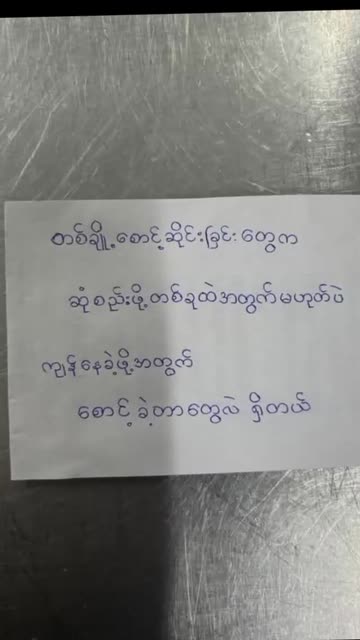 တစ်ချို့စောင့်ဆိုင်းခြင်းတွေက
ဆုံစည်းဖို့တစ်ခုထဲအတွက်မဟုတ်ပဲ
ကျန်နေခဲ့ဖို့အတွက်
စောင့်ခဲ့တာတွေလဲ ရှိတယ်